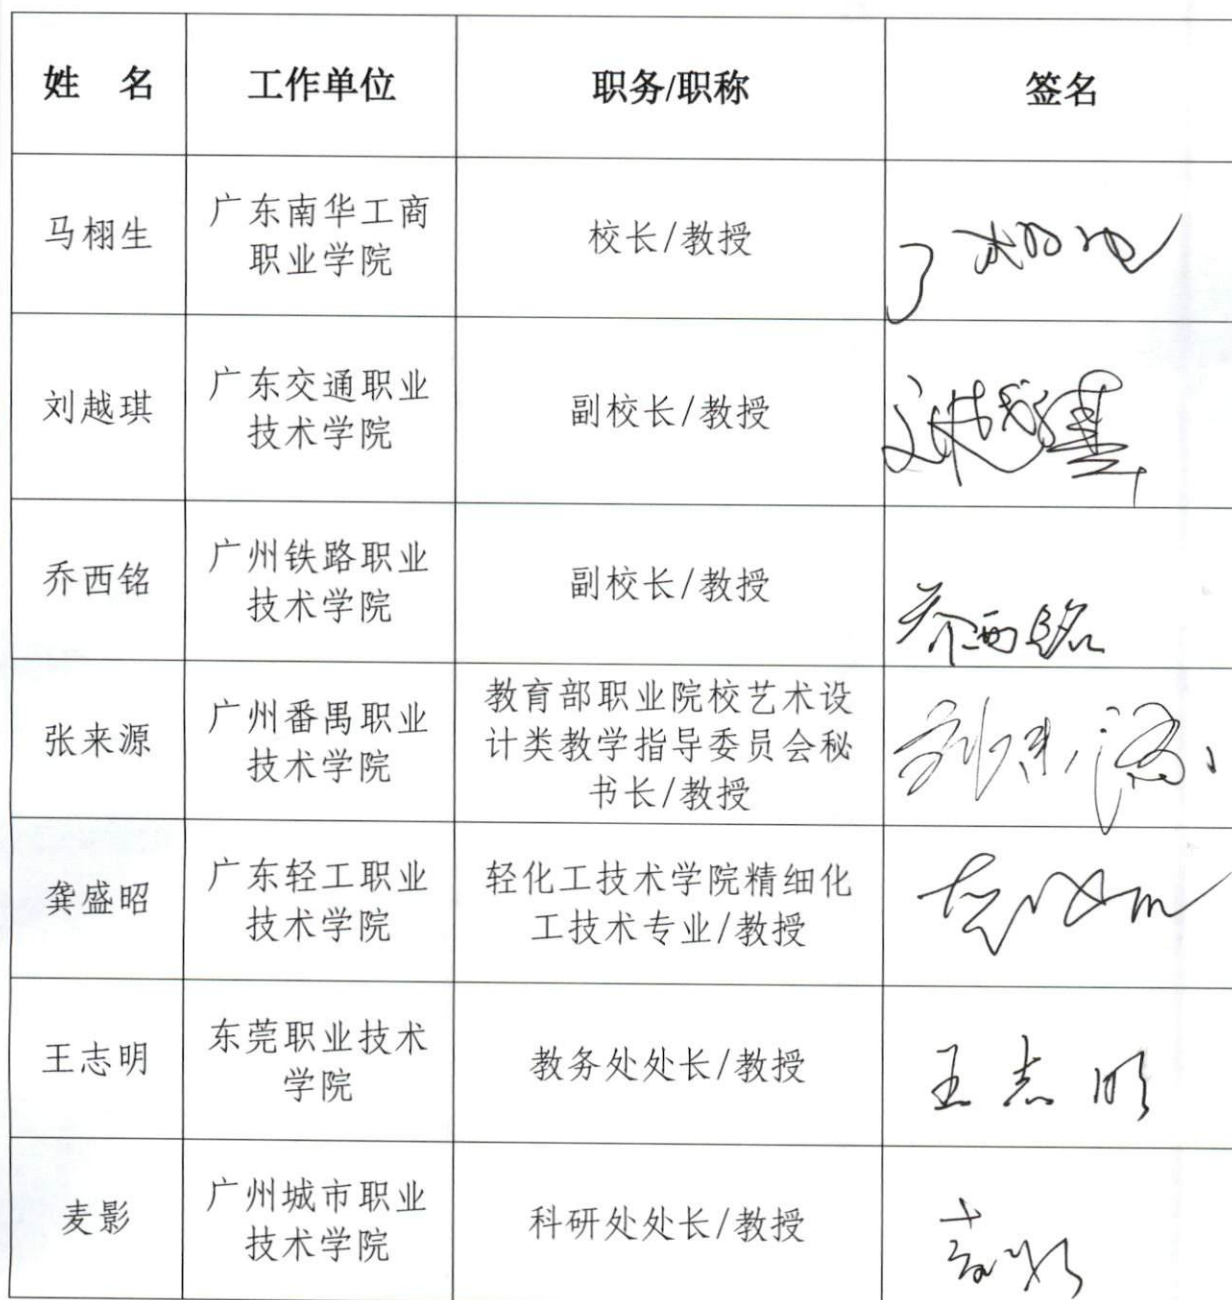 姓 名
工作单位
职务/职称
签名
马栩生
广东南华工商
职业学院
校长/教授
刘越琪
广东交通职业
技术学院
副校长/教授
乔西铭
广州铁路职业
技术学院
副校长/教授
乔西铭
张来源
广州番禺职业
技术学院
教育部职业院校艺术设
计类教学指导委员会秘
书长/教授
龚盛昭
广东轻工职业
技术学院
轻化工技术学院精细化
工技术专业/教授
王志明
东莞职业技术
学院
教务处处长/教授
王志明
麦影
广州城市职业
技术学院
科研处处长/教授